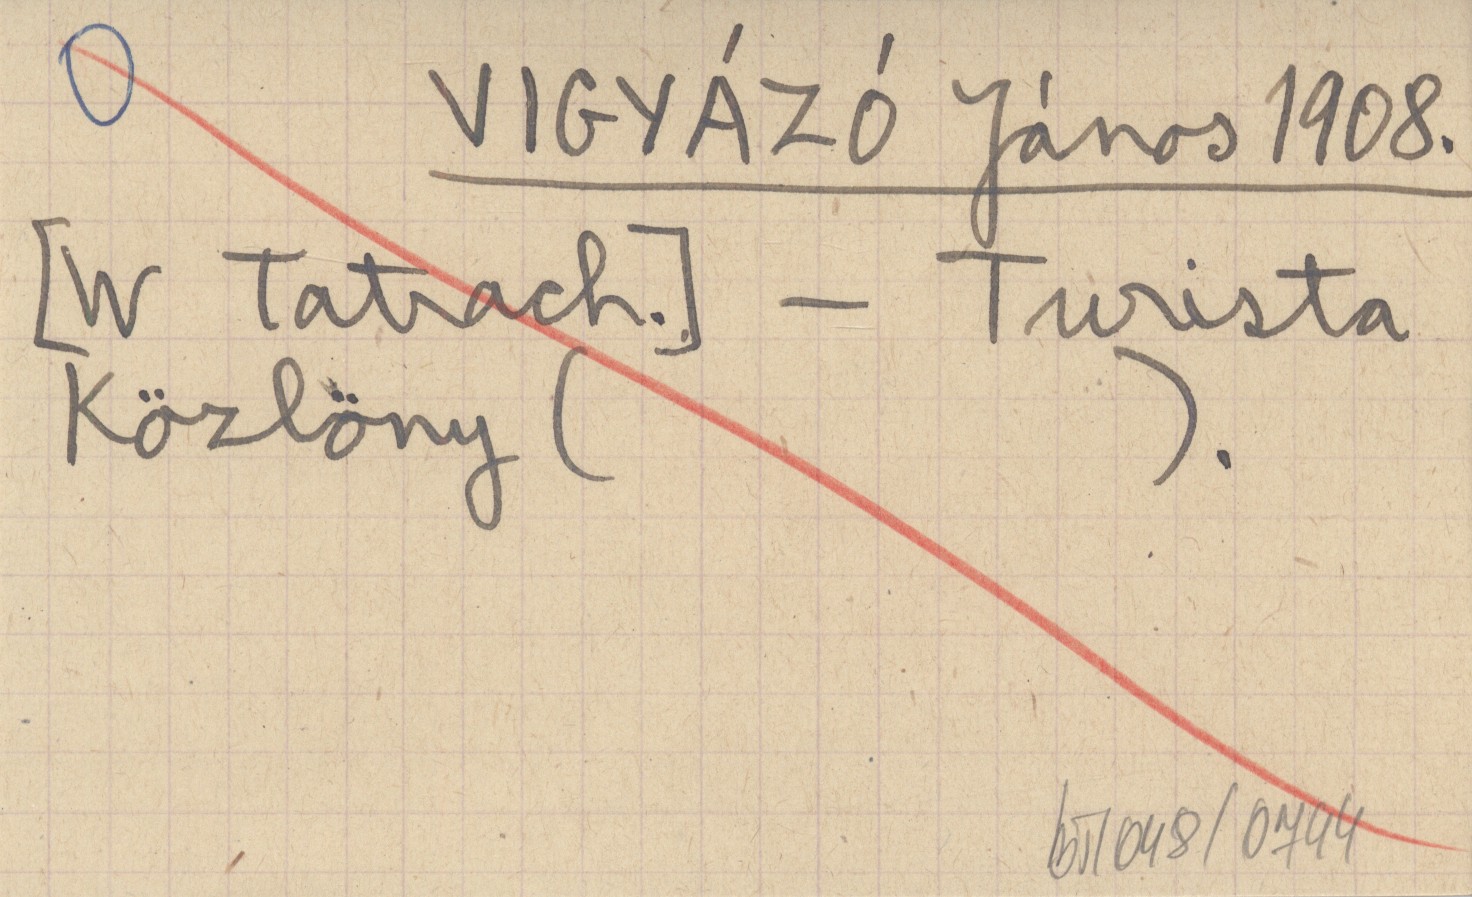 VIGYÁZÓ János 1908.
[W Tatrach.] — Turista
Közlöny (                    ).
048/0744